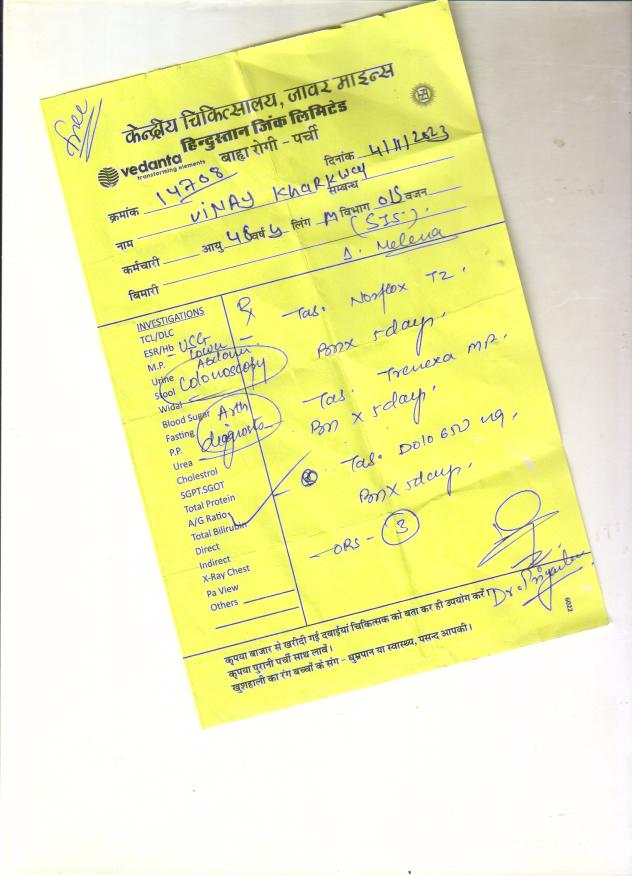 free
केन्द्रीय चिकित्सालय, जावर माइन्स
हिन्दुस्तान जिंक लिमिटेड
vedanta
transforming elements
बाह्य रोगी - पर्ची
क्रमांक 14708 दिनांक 4/11/2023
नाम VINAY KHARKWAY सम्बन्ध
कर्मचारी आयु 48 वर्ष y लिंग M विभाग O/S वजन
(SIS).
बिमारी 1. Melena
INVESTIGATIONS
TCL/DLC
ESR/Hb
M.P. - USG
Lower
Urine Abdomen
Stool Colonoscopy
Widal
Blood Sugar
Fasting
P.P. diagnosis
Urea
Cholestrol
SGPT.SGOT
Total Protein
A/G Ratio
Total Bilirubin
Direct
Indirect
X-Ray Chest
Pa View
Others
Rx
Tab. Norflox TZ.
x 5 days.
Tab. Trenexa MF.
x 5 days.
Tab. Dolo 650 mg.
x 5 days.
ORS - 3
Dr. Priyanka
कृपया बाजार से खरीदी गई दवाईयां चिकित्सक को बता कर ही उपयोग करें।
कृपया पुरानी पर्ची साथ लावें।
खुशहाली का रंग बच्चों के संग - धुम्रपान या स्वास्थ्य, पसन्द आपकी।
6022